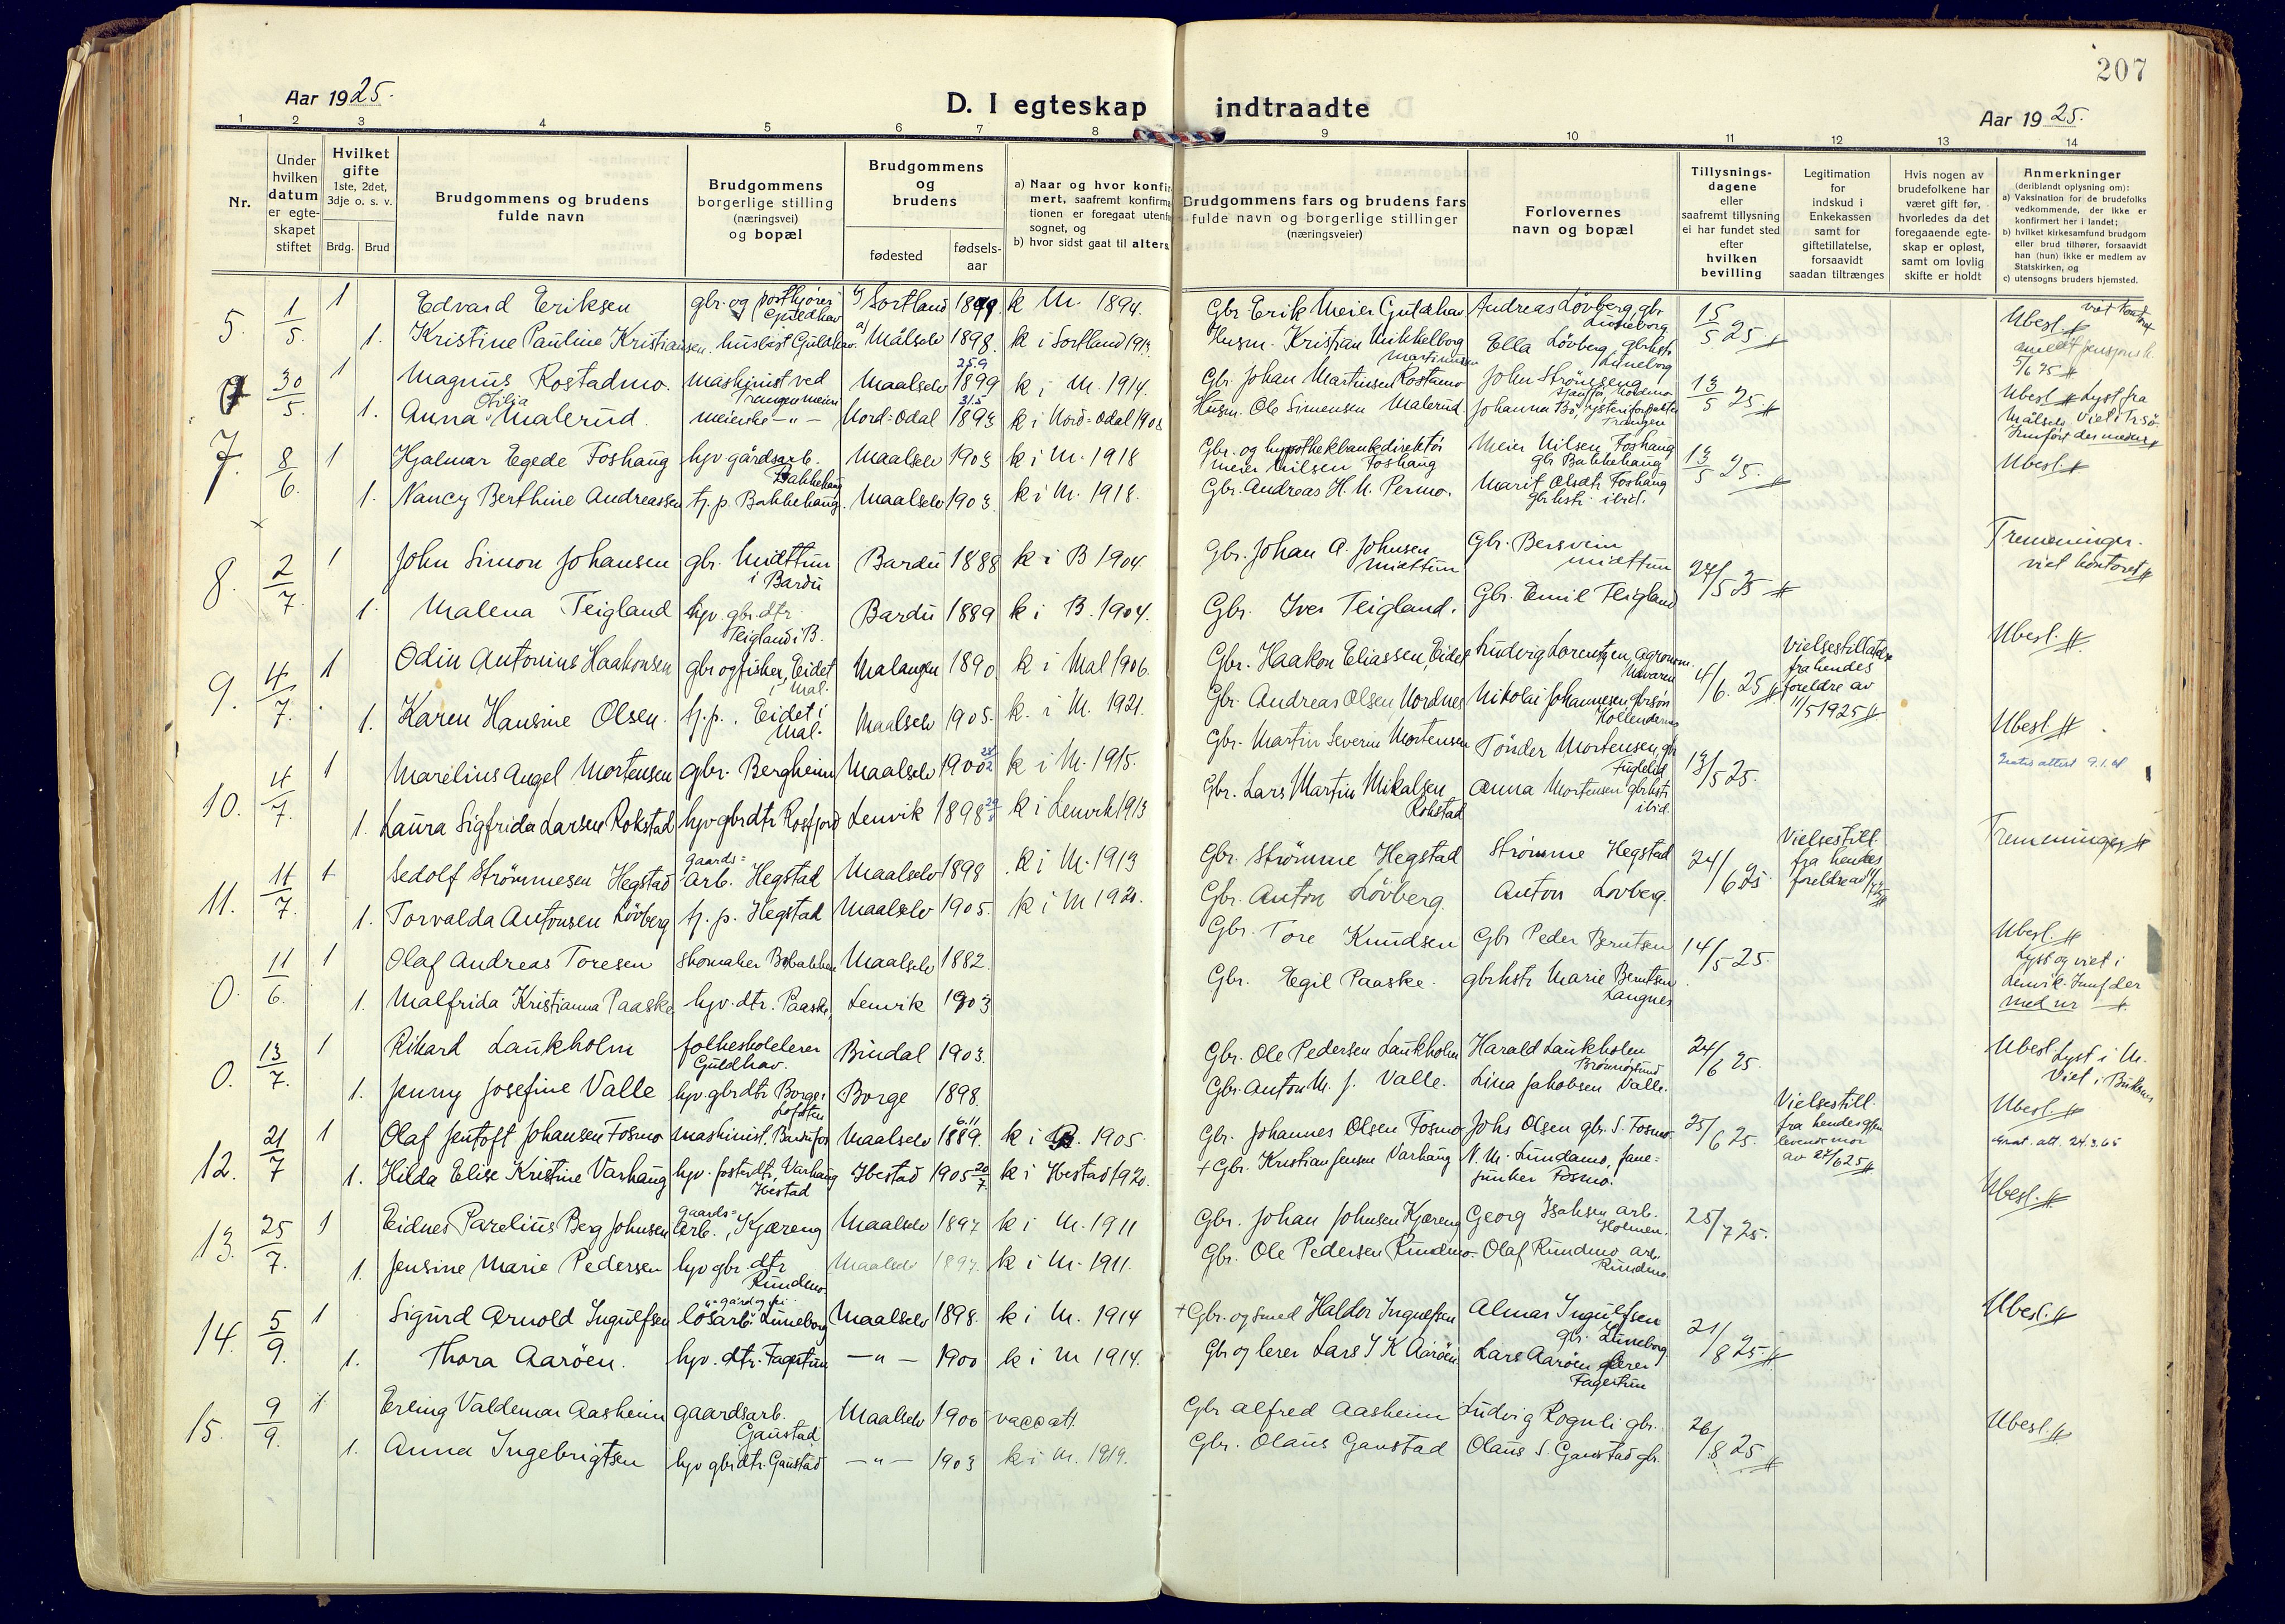 207
Aar 1925.
D. I egteskap indtraadte
Aar 1925.
1 2 3 4 5 6 7 8 9 10 11 12 13 14
Nr.
Under hvilken datum er egte-skapet stiftet
Hvilket gifte 1ste, 2det, 3dje o. s. v.
Brdg. Brud
Brudgommens og brudens fulde navn
Brudgommens borgerlige stilling (næringsvei) og bopæl
Brudgommens og brudens
fødested
fødsels-aar
a) Naar og hvor konfir mert, saafremt konfirma tionen er foregaat utenfo sognet, og
b) hvor sidst gaat til alters.
Brudgommens fars og brudens fars fulde navn og borgerlige stillinger (næringsveier)
Forlovernes navn og bopæl
Tillysnings-dagene eller saafremt tillysning ei har fundet sted efter hvilken bevilling
Legitimation for indskud i Enkekassen samt for giftetillatelse, forsaavidt saadan tiltrænges
Hvis nogen av brudefolkene har været gift før, hvorledes da det foregaaende egte-skap er opløst, samt om lovlig skifte er holdt
Anmerkninger (deriblandt oplysning om):
a) Vaksination for de brudefolks vedkommende, der ikke er konfirmert her i landet;
b) hvilket kirkesamfund brudgom eller brud tilhører, forsaavidt han (hun) ikke er medlem av Statskirken, og
c) utensogns bruders hjemsted.
5. 1/5. 1 Edvard Eriksen gbr. og postkjører Guldhav Sortland k M. 1894. Gbr. Erik Meier Guldhav Andreas Lövberg, gbr Luneborg 15/5 25 Ubesl. viet kontoret
1. Kristine Pauline Kristiansen. Guldhav. Målselv 1898. k i Sortland Husm. Kristian Mikkelborg Martinusen Ella Lövberg gbrkst. Luneborg 5/6 25
30/5. 1 Magnus Rostadmo. maskinist ved Maalselv 25.9 1899 k i M. 1914. Gbr. Johan Martinsen Rostamo John Strömseng Holdmo 13/5 25 Ubesl. Lyst fra
1. Anna Otilia Malerud. meierske -"- Nord-Odal 31.5 1893 k i Nord-Odal 1908 Husm. Ole Simensen Malerud. Johanna Bö, Målselv Viet i Trsö.
7. 8/6. 1 Hjalmar Egede Foshaug hjv gårdsarb. Bakkehaug Maalselv 1903 k i M. 1918 Gbr. og hypothekbankdirektör Meier Nilsen Foshaug Meier Nilsen Foshaug gbr Bakkehaug 13/5 25. Ubesl.
1. Nancy Berthine Andreassen tj. p. Bakkehaug. Maalselv 1903. k i M. 1918. Gbr. Andreas H. N. Permo. Marit Olsdtr Foshaug gbrkst. ibid.
8. 2/7. 1 John Simon Johansen gbr. Midttun i Bardu Bardu 1888 k i B 1904. Gbr. Johan A. Johnsen Midttun Gbr. Bersvein Midttun 24/5 25 Tremeninger. viet kontoret
1. Malena Teigland hjv. gbr. dtr Teigland i B. Bardu 1889 k i B. 1904. Gbr. Iver Teigland. Gbr. Emil Teigland
9. 4/7. 1 Odin Antonius Haakonsen gbr og fisker, Eidet i Mal. Malangen 1890. k i Mal 1906. Gbr. Haakon Eliassen, Eidet Ludvig Lorentzen, agronom. 4/6. 25 Vielsestillatelse fra hendes foreldre av 11/5 1925 Ubesl.
1. Karen Hansine Olsen. tj. p. Eidet i Mal. Maalselv 1905. k. i M. 1921. Gbr. Andreas Olsen Nordnes Nikolai Johannesen gbrsön
10. 4/7. 1 Marelius Angel Mortensen gbr. Bergheim Maalselv 1900 k i M. 1915. Gbr. Martin Severin Mortensen Tönder Mortensen, gbr Fuglelid 13/5 25. Ubesl.
1. Laura Sigfrida Larsen Rokstad hjv gbrdtr Rossfjord Lenvik 1898 k i Lenvik 1913 Gbr. Lars Martin Mikalsen Rokstad Anna Mortensen gbrkst. ibid.
11. 11/7. 1 Sedolf Strömmesen Hegstad gaards-arb. Hegstad Maalselv 1898 k i M. 1913 Gbr. Strömme Hegstad Strömme Hegstad 24/6 25 Vielsestill. fra hendes foreldre av Tremeninger
1. Torvalda Antonsen Lövberg tj. p. Hegstad Maalselv 1905. k i M 1920. Gbr. Anton Lövberg. Anton Lovberg.
0. 11/6. 1 Olaf Andreas Toresen skomaker Maalselv 1882. Gbr. Tore Knudsen Gbr Peder Berntsen 14/5 25. Ubesl. Lyst og viet i
1. Malfrida Kristianna Paaske hjv. dtr. Paaske, Lenvik 1903 Gbr. Egil Paaske. gbrkst. Marie Berntsen Langnes Lenvik.
0. 13/7. 1 Rikard Laukholm folkeskolelerer Guldhav. Bindal 1903. Gbr. Ole Pedersen Laukholm Harald Laukholm Brönnöysund 24/6 25. Ubesl Lyst i M. Viet i Buksnes
1. Jenny Josefine Valle hjv gbrdtr Borge i Lofoten Borge 1898. Gbr. Anton M. J. Valle. Lina Jakobsen Valle.
12. 21/7 1 Olaf Jentoft Johansen Fosmo maskinist. Bardufos Maalselv 6.11 1889. k i B. 1905. Gbr. Johannes Olsen Fosmo Johs Olsen gbr. S. Fosmo 25/6 25. Vielsestill. fra hendes gjen levende mor av 24/6 25 Ubesl. Grat. att. 24.3.65
1. Hilda Elise Kristine Varhaug hjv. fosterdtr, Varhaug Ibestad Ibestad 1905 20/7. k i Ibestad 1920. + Gbr. Kristian Jensen Varhaug N. M. Lundamo, fane-junker Fosmo.
13. 25/7. 1 Eidnes Parelius Berg Johnsen gaards-arb., Kjæreng Maalselv 1897 k i M. 1911 Gbr. Johan Johnsen Kjæreng Georg Isaksen arb. Holmen. 25/7 25. Ubesl.
1. Jensine Marie Pedersen hjv gbr. dtr Rundmo Maalselv 1897. k i M. 1911. Gbr. Ole Pedersen Rundmo Olaf Rundmo arb. Rundmo.
14. 5/9. 1 Sigurd Arnold Ingulfsen lösarb. Luneborg Maalselv 1898. k i M. 1914 + Gbr. og smed Haldor Ingulfsen Almar Ingulfsen gbr. Luneborg. 21/8 25 Ubesl.
1. Thora Aaröen. hjv. dtr. Fagertun -"- 1900 k i M 1914. Gbr og lerer Lars I K Aaröen Lars Aaröen lerer Fagertun
15. 9/9. 1 Erling Valdemar Aasheim gaardsarb. Gaustad Maalselv 1900 vaccatt. Gbr Alfred Aasheim Ludvig Rognli gbr. 26/8 25 Ubesl.
1. Anna Ingebrigtsen hjv gbrdtr. Gaustad -"- 1903 k i M. 1919. Gbr. Olaus Gaustad Olaus S. Gaustad gbr.